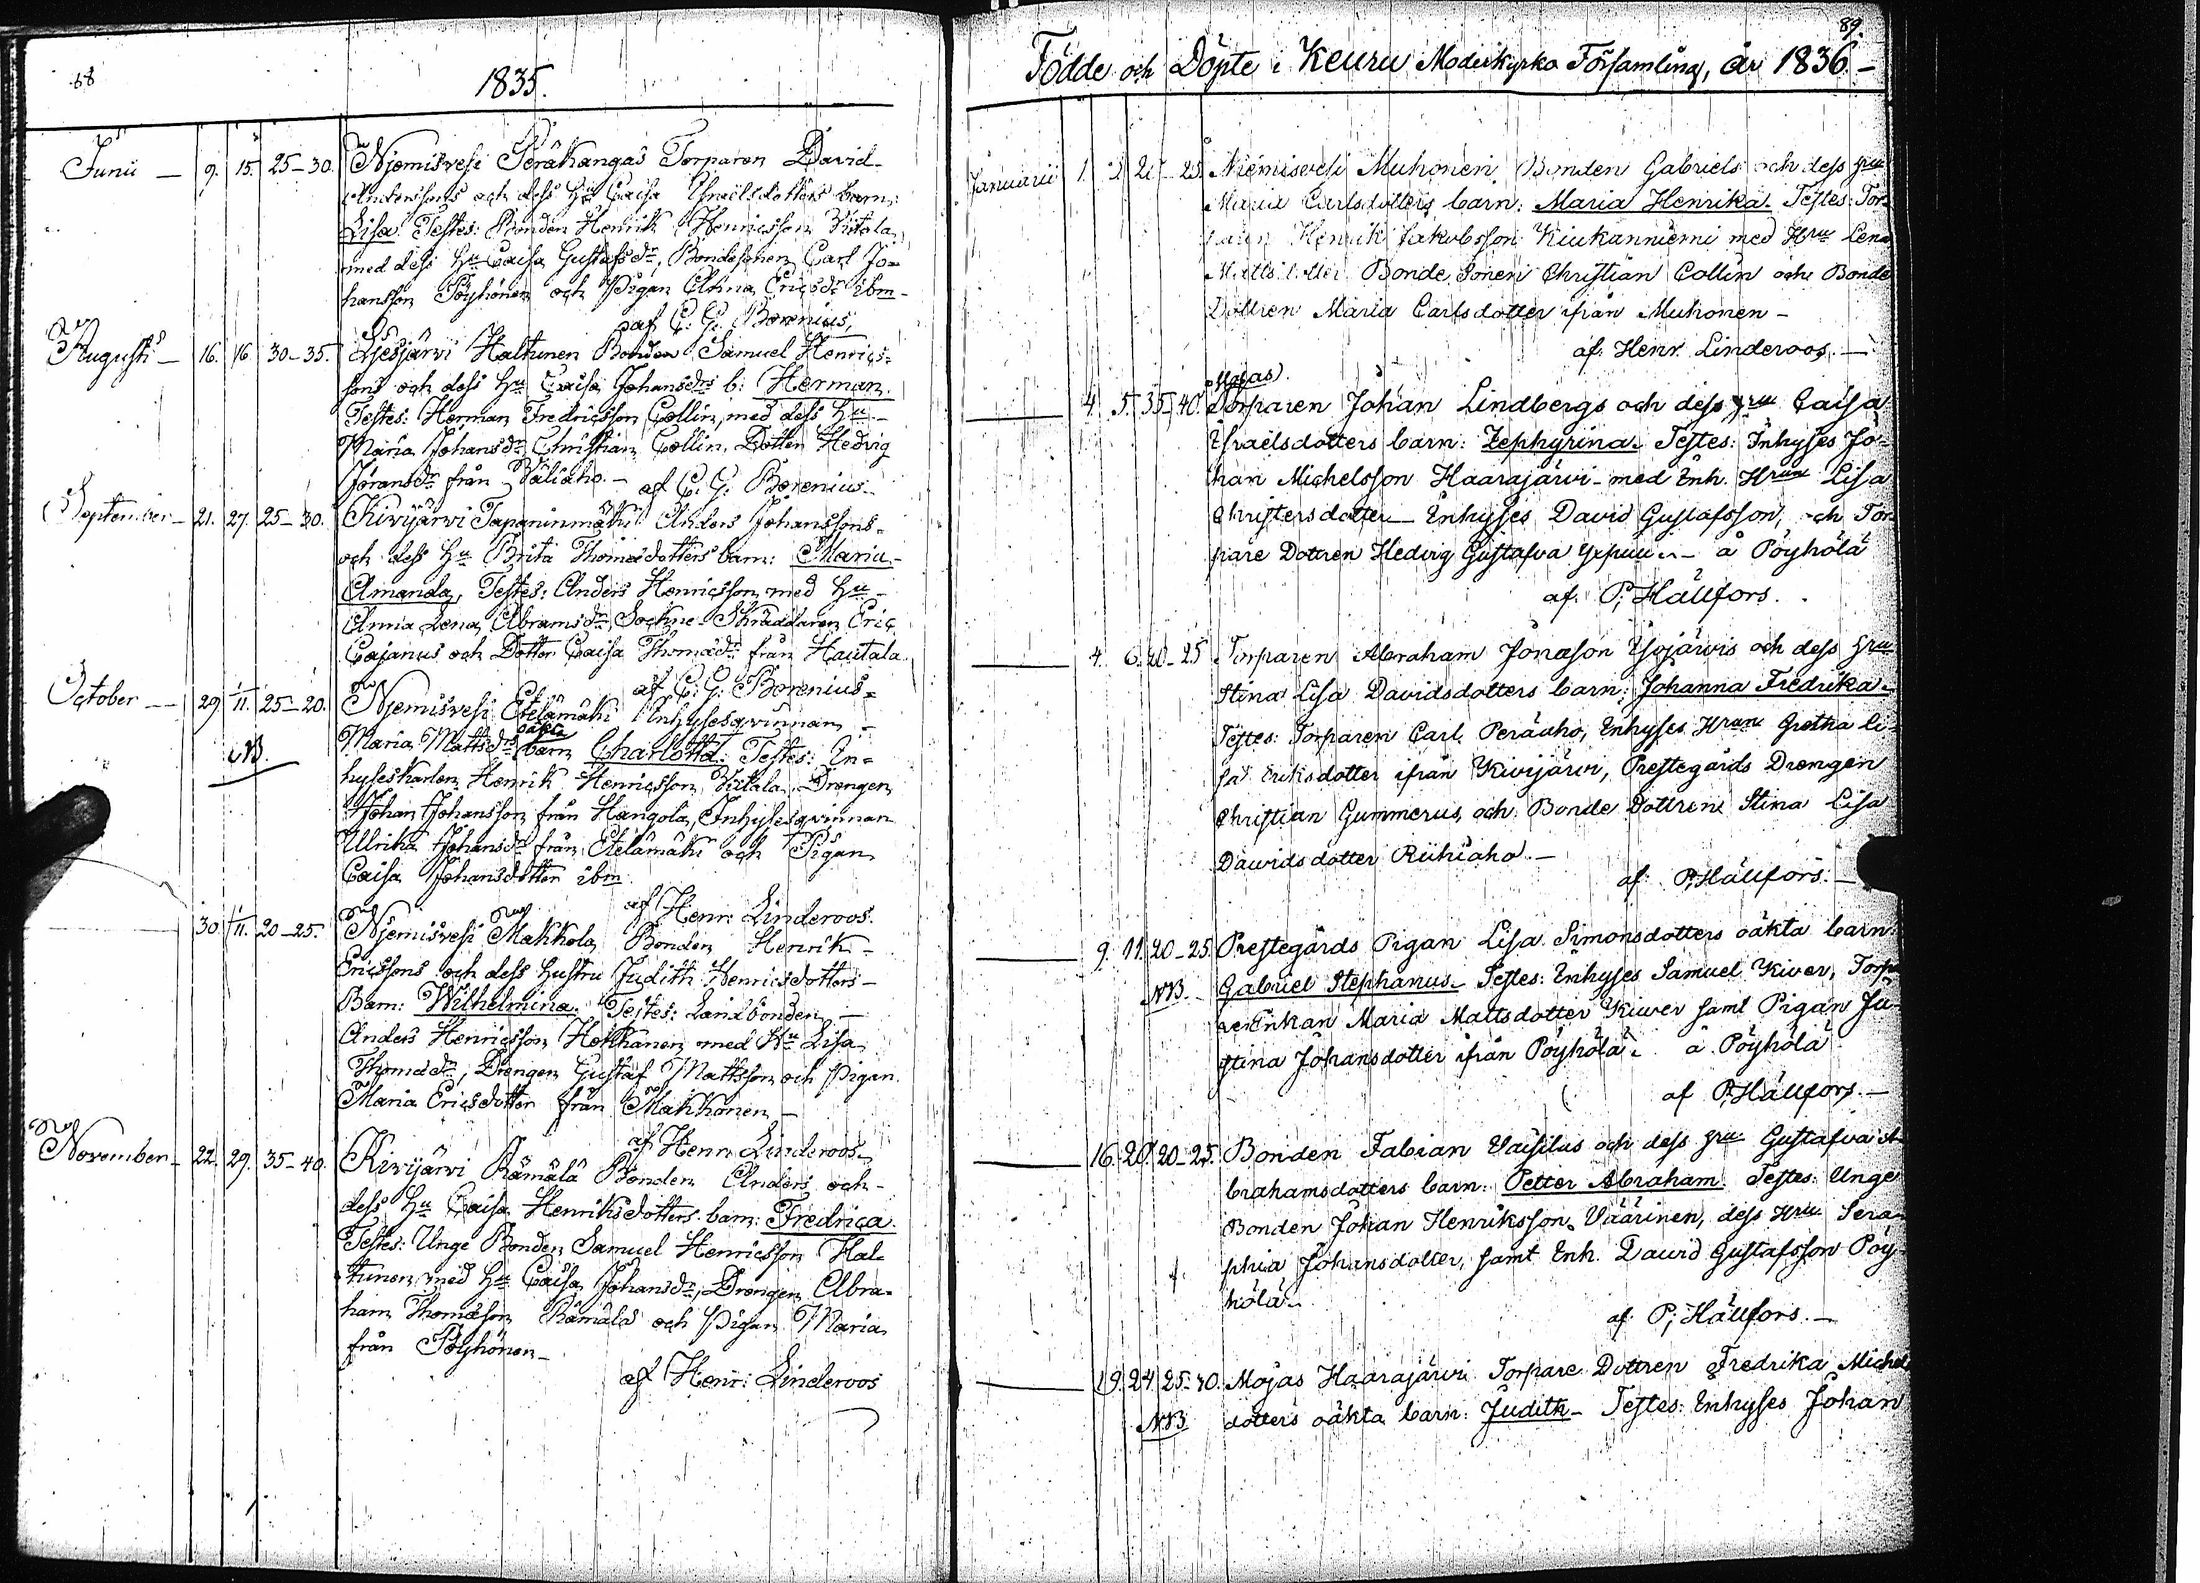 68
1835.
Junii — 9. 15. 25-30. Njemisvesi Peräkangas Torparen David
Anderssons och dess Hu Caisa Israelsdotters barn:
Lisa. Testes: Bonden Henrik Henricsson Viitala,
med dess Hu Caisa Gustafsdr, Bondesonen Carl Jo=
hansson Pöyhönen och Pigan Anna Ericsdr ibm -
af C. G. Borenius,
Augusti — 16. 16. 30-35. Halttunen Bonden Samuel Henrics=
sons och dess Hu Caisa Johansdrs b: Herman.
Testes: Herman Fredricsson Collin, med dess Hu -
Maria Johansdr, Christian Collin, Dotter Hedvig
Göransdr från Väliaho. - af C. G. Borenius.
September - 21. 27. 25-30. Kivijärvi Tapaninmäki Anders Johanssons -
och dess Hu Brita Thomædotters barn: Maria
Amanda, Testes: Anders Henricsson med Hu -
Anna Lena Abramsdr, Sockne Skräddaren Eric
Cajanus och Dotter Caisa Thomædr från Hautala.
af C. G. Borenius.
October — 29 1/11. 25-20. Njemisvesi Etelämäki Inhysesqvinnan -
NB. Maria Mattsdrs oäkta barn Charlotta. Testes: In=
hyseskarlen Henrik Henricsson Viitala, Drengen
Johan Johansson från Hangola, Inhysesqvinnan
Ulrika Johansdr från Etelämäki och Pigan
Caisa Johansdotter ibm.
af Henr: Linderoos.
30 1/11. 20-25. Njemisvesi Makkola Bonden Henrik -
Ericssons och dess Hustru Judith Henricsdotters -
Barn: Wilhelmina. Testes: Landbonden -
Anders Henricsson Hokkanen med Hu Lisa
Thomædr, Drengen Gustaf Mattsson och Pigan
Maria Ericsdotter från Makkonen -
af Henr: Linderoos.
November - 22. 29. 35-40. Kivijärvi Rämälä Bonden Anders och -
dess Hu Caisa Henriksdotters barn: Fredrica.
Testes: Unge Bonden Samuel Henricsson Hal=
tunen med Hu Caisa Johansdr, Drengen Abra=
ham Thomæson Rämälä och Pigan Maria
från Pöyhönen -
af Henr: Linderoos
89.
Födde och Döpte i Keuru Moderkyrko Församling, år 1836 -
Januarii 1. 3. 20-25. Niemisvesi Muhonen Bonden Gabriels och dess Hru
Maria Carlsdotters barn: Maria Henrika. Testes: Tor-
paren Henrik Jakobsson Kiukanniemi med Hru Lena
Mattsdotter. Bonde Sonen Christian Collin och Bonde
Dottren Maria Carlsdotter ifrån Muhonen -
af: Henr. Linderoos. —
Mojas
— 4. 5. 35-40. Torparen Johan Lindbergs och dess Hru Caisa
Israelsdotters barn: Zephyrina. Testes: Inhyses Jo-
han Michelsson Haarajärvi med Enh. Hrun Lisa
Christersdotter - Enhyses David Gustafsson, och Tor-
pare Dottren Hedvig Gustafva - å Pöyhölä
af: P; Hällfors.
— 4. 6. 20-25 Torparen Abraham Jonæson Isojärvis och dess Hru
Stina Lisa Davidsdotters barn: Johanna Fredrika.
Testes: Torparen Carl Peräaho, Enhyses Hrun Gretha Li-
sa Eriksdotter ifrån Kivijärvi, Prestegårds Drengen
Christian Gummerus, och Bonde Dottren Stina Lisa
Davidsdotter Riihiaho. -
af: P; Hällfors. —
— 9. 11. 20-25. Prestegårds Pigan Lisa Simonsdotters oäkta barn:
NB. Gabriel Stephanus. Testes: Enhyses Samuel Kiver, Torpa-
re Enkan Maria Mattsdotter Kiwer samt Pigan Ju-
stina Johansdotter ifrån Pöyhölä. å Pöyhölä
af P; Hällfors. —
— 16. 20. 20-25. Bonden Fabian Vaisilus och dess Hru Gustafva A-
brahamsdotters barn: Petter Abraham. Testes: Unge
Bonden Johan Henriksson Väärinen, dess Hru Sera-
phia Johansdotter, samt Enh. David Gustafsson Pöy-
hölä.
af: P; Hällfors. —
— 19. 24. 25-30. Mojas Haarajärvi Torpare Dottren Fredrika Michels
NB dotters oäkta barn: Judith - Testes: Enhyses Johan